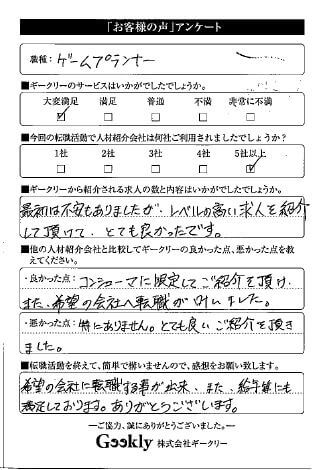 「お客様の声」アンケート
職種: ゲームプランナー
■ギークリーのサービスはいかがでしたでしょうか。
大変満足 満足 普通 不満 非常に不満
■今回の転職活動で人材紹介会社は何社ご利用されましたでしょうか?
1社 2社 3社 4社 5社以上
■ギークリーから紹介される求人の数と内容はいかがでしたでしょうか。
最初は不安もありましたが、レベルの高い求人を紹介
して頂けて、とても良かったです。
■他の人材紹介会社と比較してギークリーの良かった点、悪かった点を教
えてください。
・良かった点: コンシューマに限定してご紹介を頂け、
また、希望の会社へ転職が叶いました。
・悪かった点: 特にありません。とても良いご紹介を頂き
ました。
■転職活動を終えて、簡単で構いませんので、感想をお願い致します。
希望の会社に転職する事が出来、また、給与等にも
満足しております。ありがとうございます。
―ご協力、誠にありがとうございました。―
Geekly 株式会社ギークリー